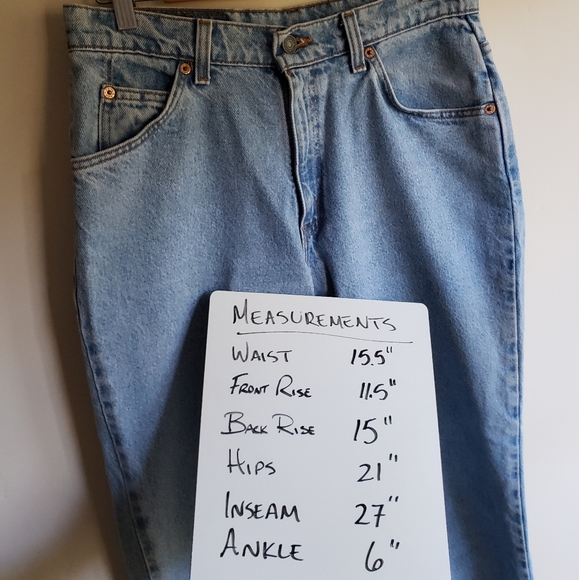 MEASUREMENTS
WAIST 15.5"
FRONT RISE 11.5"
BACK RISE 15"
HIPS 21"
INSEAM 27"
ANKLE 6"